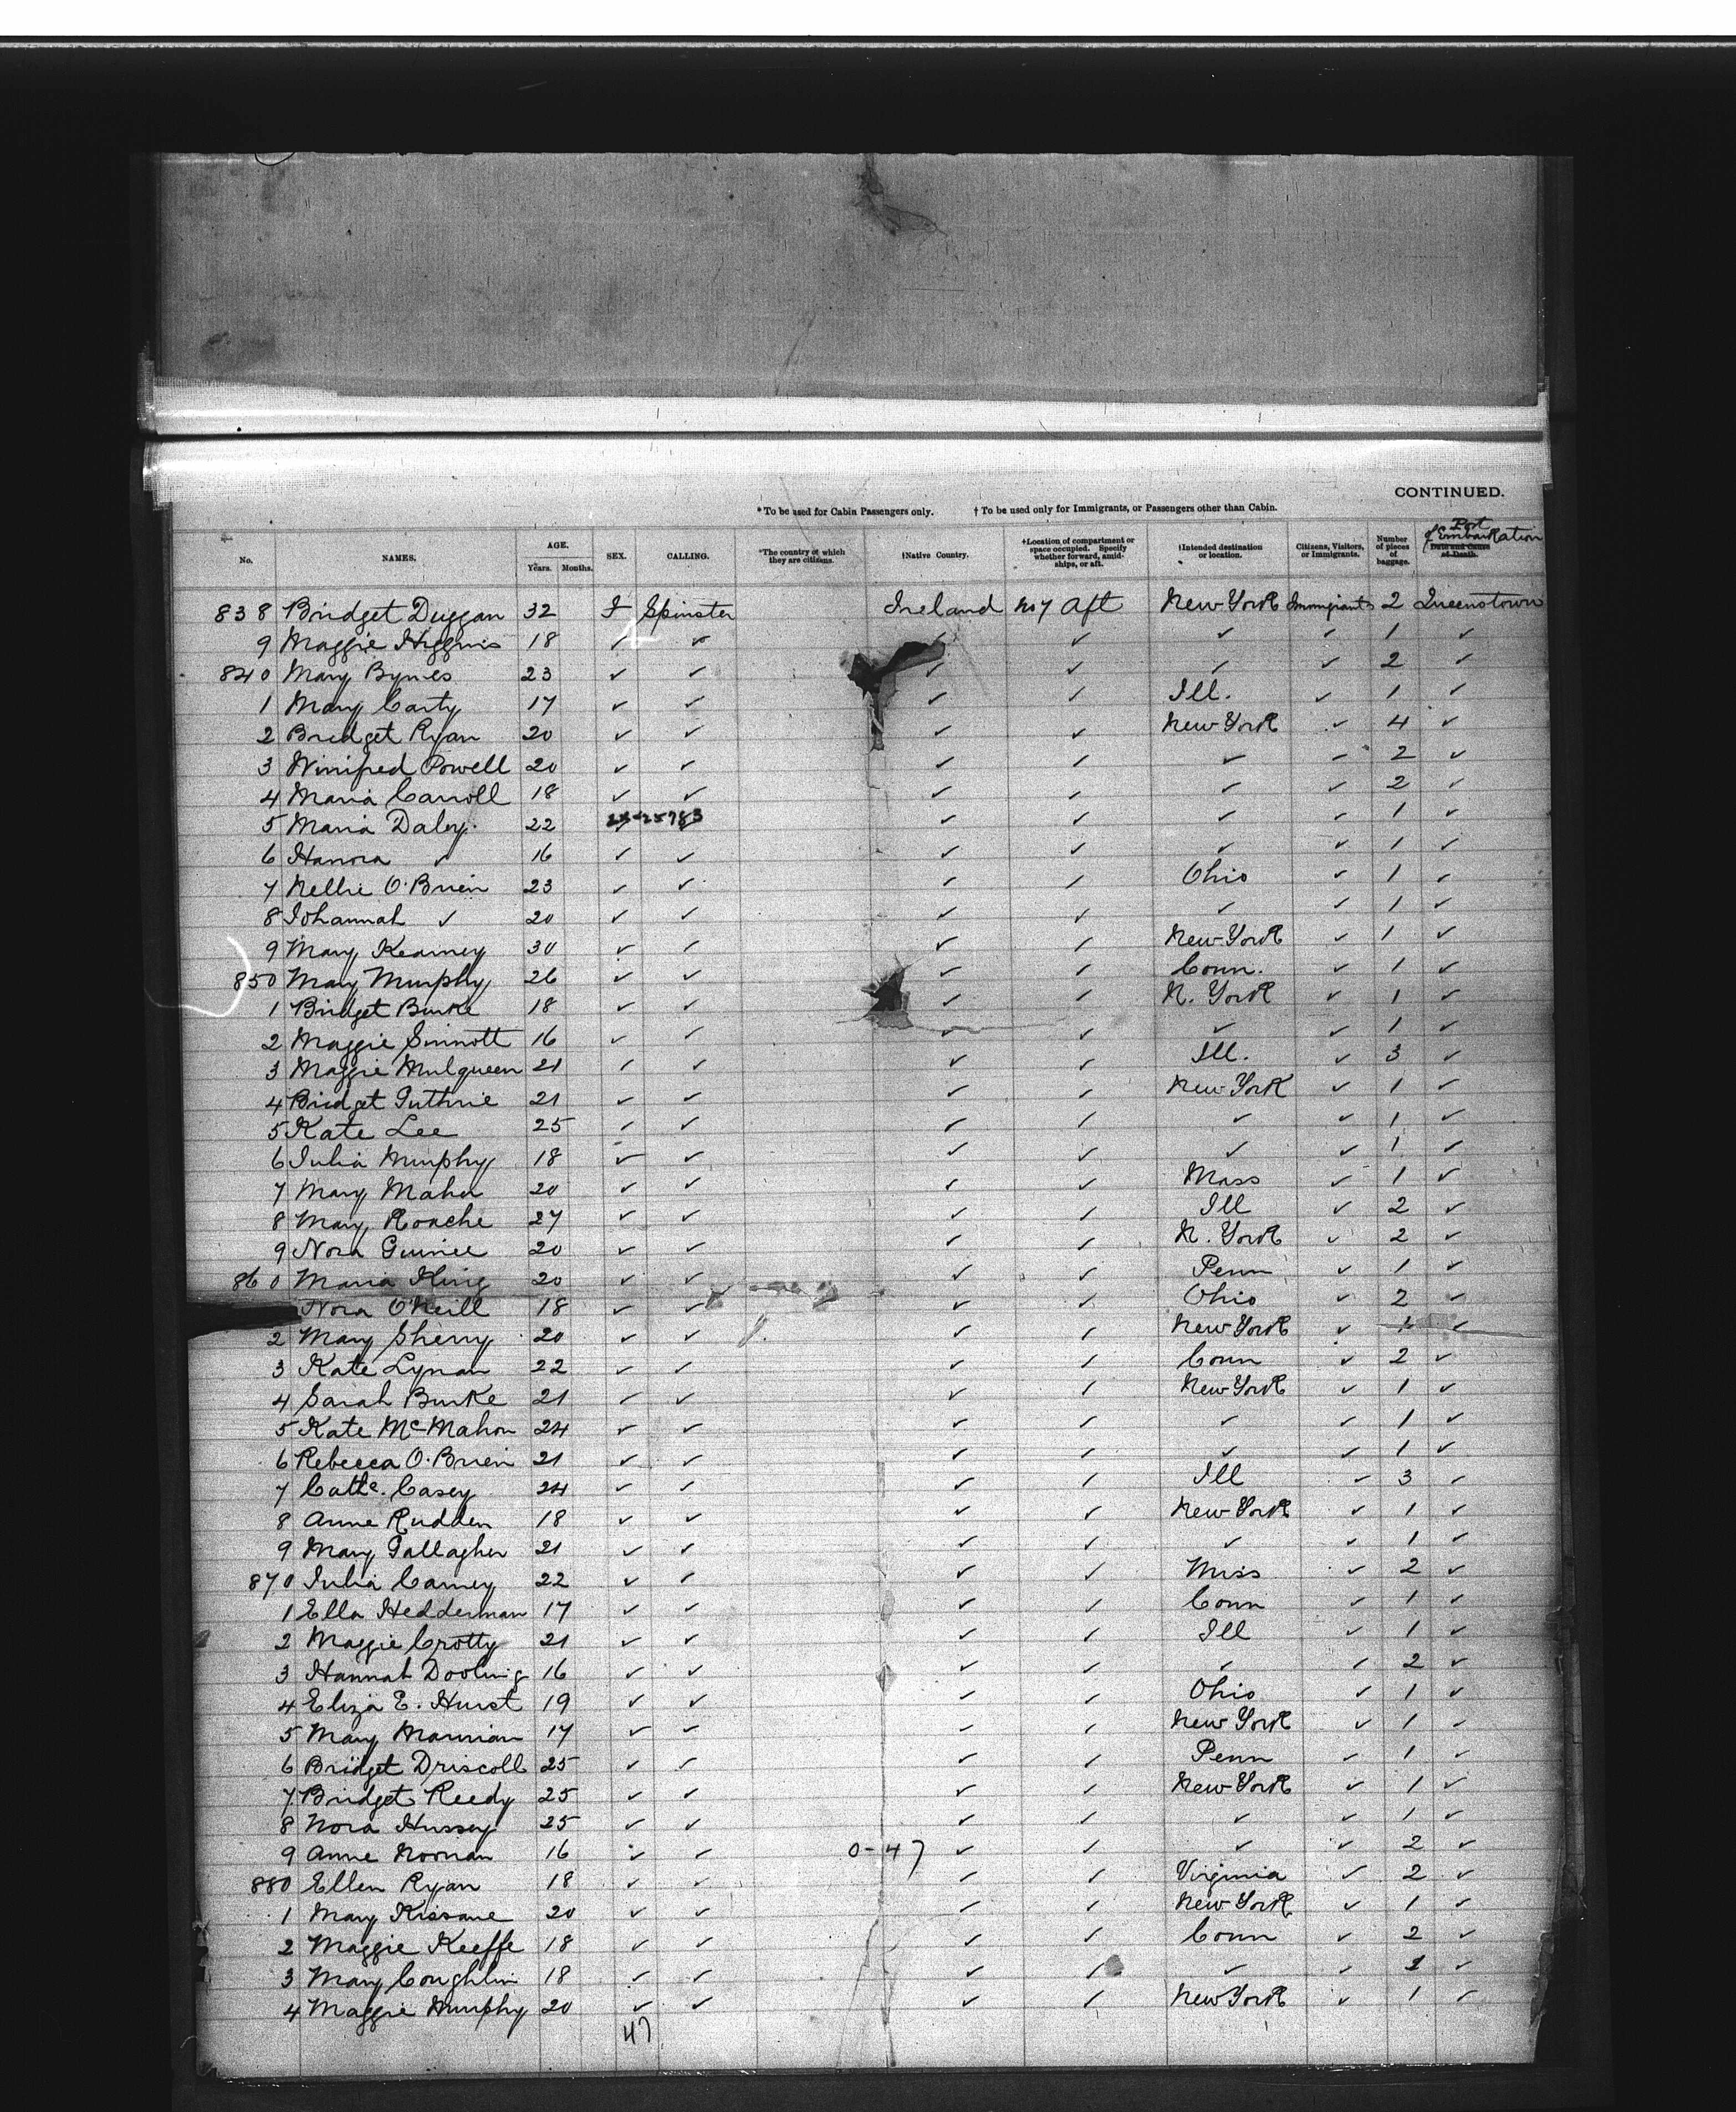 CONTINUED.
* To be used for Cabin Passengers only. † To be used only for Immigrants, or Passengers other than Cabin.
No. NAMES. AGE. Years. Months. SEX. CALLING. *The country of which they are citizens. †Native Country. †Location of compartment or space occupied. Specify whether forward, amidships, or aft. †Intended destination or location. Citizens, Visitors, or Immigrants. Number of pieces of baggage. Date and Cause of Death. Port of Embarkation
838 Bridget Duggan 32 F Spinster Ireland No 7 Aft New York Immigrants 2 Queenstown
9 Maggie Higgins 18 ✓ ✓ ✓ ✓ ✓ ✓ 1 ✓
840 Mary Byrnes 23 ✓ ✓ ✓ ✓ ✓ ✓ 2 ✓
1 Mary Carty 17 ✓ ✓ ✓ ✓ Ill. ✓ 1 ✓
2 Bridget Ryan 20 ✓ ✓ ✓ ✓ New York ✓ 4 ✓
3 Winifred Powell 20 ✓ ✓ ✓ ✓ ✓ ✓ 2 ✓
4 Maria Carroll 18 ✓ ✓ ✓ ✓ ✓ ✓ 2 ✓
5 Maria Daley 22 ✓ ✓ ✓ ✓ 1 ✓
6 Hanora ✓ 16 ✓ ✓ ✓ ✓ ✓ ✓ 1 ✓
7 Nellie O'Brien 23 ✓ ✓ ✓ ✓ Ohio ✓ 1 ✓
8 Johannah ✓ 20 ✓ ✓ ✓ ✓ ✓ ✓ 1 ✓
9 Mary Kearney 30 ✓ ✓ ✓ ✓ New York ✓ 1 ✓
850 Mary Murphy 26 ✓ ✓ ✓ ✓ Conn. ✓ 1 ✓
1 Bridget Burke 18 ✓ ✓ ✓ ✓ N. York ✓ 1 ✓
2 Maggie Sinnott 16 ✓ ✓ ✓ ✓ ✓ ✓ 1 ✓
3 Maggie Mulqueen 21 ✓ ✓ ✓ ✓ Ill. ✓ 3 ✓
4 Bridget Guthrie 21 ✓ ✓ ✓ ✓ New York ✓ 1 ✓
5 Kate Lee 25 ✓ ✓ ✓ ✓ ✓ ✓ 1 ✓
6 Julia Murphy 18 ✓ ✓ ✓ ✓ ✓ ✓ 1 ✓
7 Mary Maher 20 ✓ ✓ ✓ ✓ Mass ✓ 1 ✓
8 Mary Roache 27 ✓ ✓ ✓ ✓ Ill ✓ 2 ✓
9 Nora Guinee 20 ✓ ✓ ✓ ✓ N. York ✓ 2 ✓
860 Maria King 20 ✓ ✓ ✓ ✓ Penn ✓ 1 ✓
Nora O'Neill 18 ✓ ✓ ✓ ✓ Ohio ✓ 2 ✓
2 Mary Sherry 20 ✓ ✓ ✓ ✓ New York ✓ 1 ✓
3 Kate Lynan 22 ✓ ✓ ✓ ✓ Conn ✓ 2 ✓
4 Sarah Burke 21 ✓ ✓ ✓ ✓ New York ✓ 1 ✓
5 Kate McMahon 24 ✓ ✓ ✓ ✓ ✓ ✓ 1 ✓
6 Rebecca O'Brien 21 ✓ ✓ ✓ ✓ ✓ ✓ 1 ✓
7 Cathe. Casey 24 ✓ ✓ ✓ ✓ Ill ✓ 3 ✓
8 Anne Rudden 18 ✓ ✓ ✓ ✓ New York ✓ 1 ✓
9 Mary Gallagher 21 ✓ ✓ ✓ ✓ ✓ ✓ 1 ✓
870 Julia Carney 22 ✓ ✓ ✓ ✓ Miss ✓ 2 ✓
1 Ella Hedderman 17 ✓ ✓ ✓ ✓ Conn ✓ 1 ✓
2 Maggie Crotty 21 ✓ ✓ ✓ ✓ Ill ✓ 1 ✓
3 Hannah Dooling 16 ✓ ✓ ✓ ✓ ✓ ✓ 2 ✓
4 Eliza E. Hurst 19 ✓ ✓ ✓ ✓ Ohio ✓ 1 ✓
5 Mary Marrinan 17 ✓ ✓ ✓ ✓ New York ✓ 1 ✓
6 Bridget Driscoll 25 ✓ ✓ ✓ ✓ Penn ✓ 1 ✓
7 Bridget Reedy 25 ✓ ✓ ✓ ✓ New York ✓ 1 ✓
8 Nora Hussey 25 ✓ ✓ ✓ ✓ ✓ ✓ 1 ✓
9 Anne Noonan 16 ✓ ✓ 0-47 ✓ ✓ ✓ ✓ 2 ✓
880 Ellen Ryan 18 ✓ ✓ ✓ ✓ Virginia ✓ 2 ✓
1 Mary Kissane 20 ✓ ✓ ✓ ✓ New York ✓ 1 ✓
2 Maggie Keeffe 18 ✓ ✓ ✓ ✓ Conn ✓ 2 ✓
3 Mary Coughlin 18 ✓ ✓ ✓ ✓ ✓ ✓ ✓
4 Maggie Murphy 20 ✓ ✓ ✓ ✓ New York ✓ 1 ✓
47